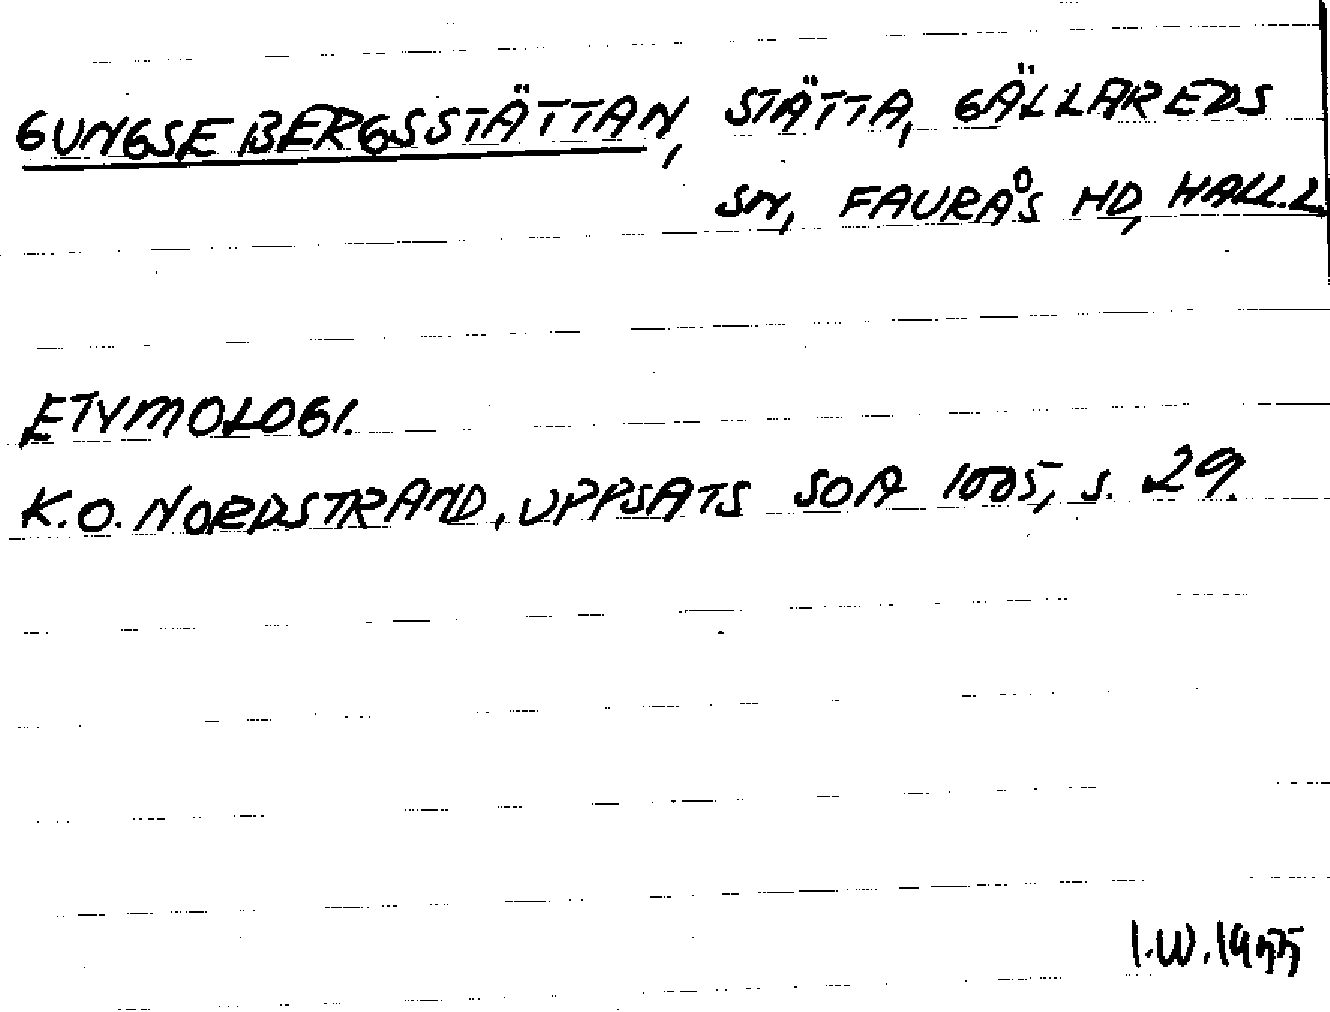 GUNGSEBERGSSTÄTTAN, STÄTTA, GÄLLAREDS
SN, FAURÅS HD, HALL.L
ETYMOLOGI.
K.O. NORDSTRAND, UPPSATS SOA 1005, S. 29.
I.W. 1955